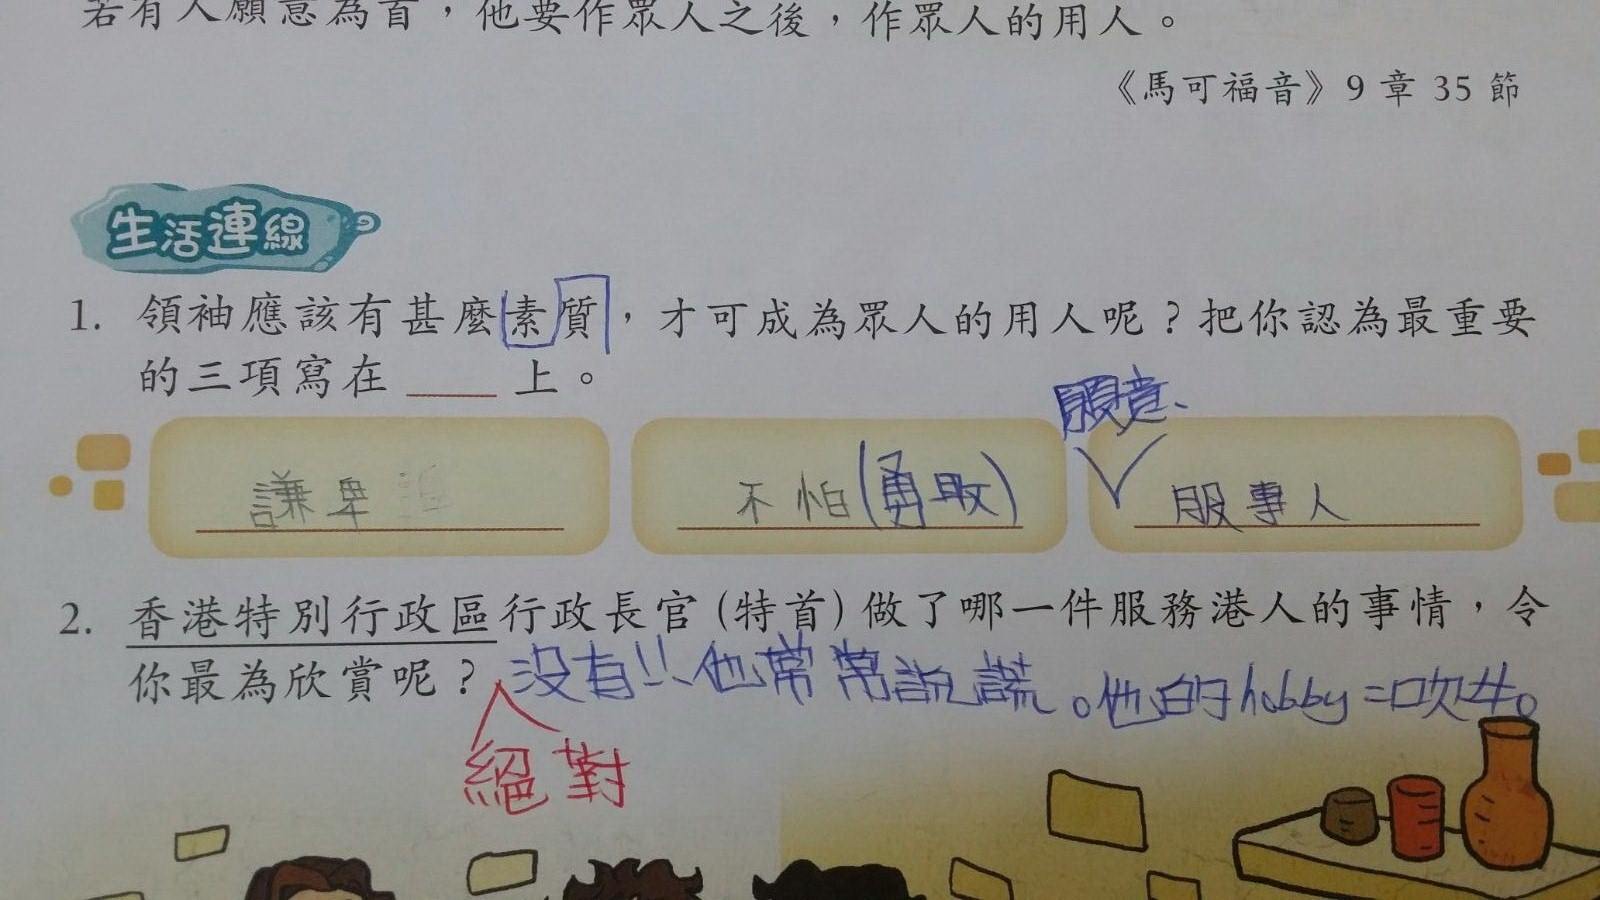 若有人願意為首，他要作眾人之後，作眾人的用人。
《馬可福音》9 章 35 節
生活連線
1. 領袖應該有甚麼素質，才可成為眾人的用人呢？把你認為最重要
的三項寫在 ____ 上。
願意、
謙卑
不怕(勇敢)
服事人
2. 香港特別行政區行政長官(特首)做了哪一件服務港人的事情，令
你最為欣賞呢？
沒有!!他常常說謊。他的hobby=吹牛。
絕對